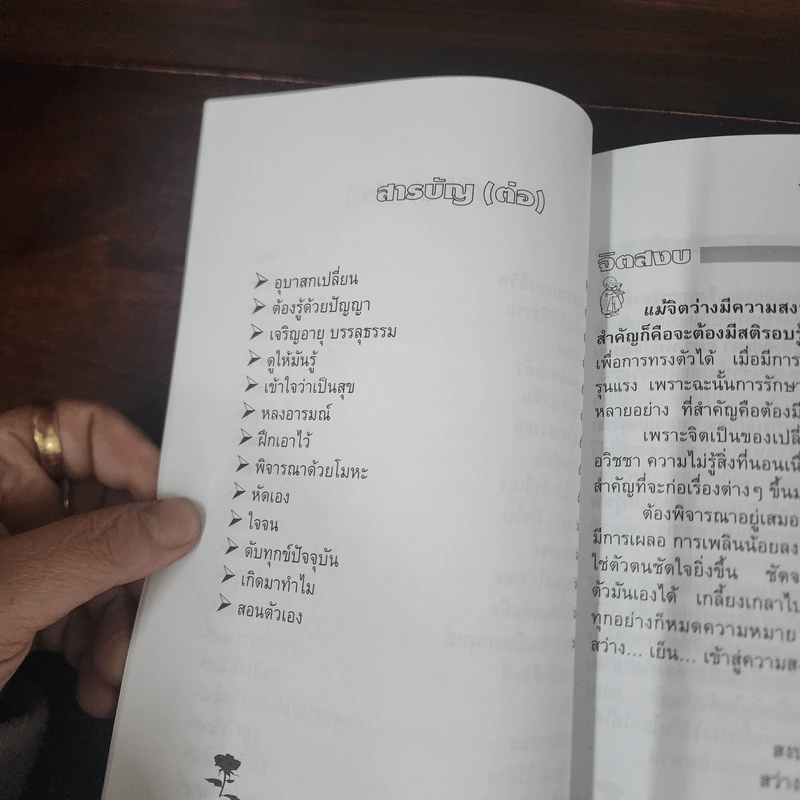 สารบัญ (ต่อ)
อุบาสกเปลี่ยน
ต้องรู้ด้วยปัญญา
เจริญอายุ บรรลุธรรม
ดูให้มันรู้
เข้าใจว่าเป็นสุข
หลงอารมณ์
ฝึกเอาไว้
พิจารณาด้วยโมหะ
หัดเอง
ใจจน
ดับทุกข์ปัจจุบัน
เกิดมาทำไม
สอนตัวเอง
จิตสงบ
แม้จิตว่างมีความสงบ
สำคัญก็คือจะต้องมีสติรอบรู้
เพื่อการทรงตัวได้ เมื่อมีการ
รุนแรง เพราะฉะนั้นการรักษา
หลายอย่าง ที่สำคัญคือต้องมี
เพราะจิตเป็นของเปลี่
อวิชชา ความไม่รู้สิ่งที่นอนเนื่
สำคัญที่จะก่อเรื่องต่างๆ ขึ้นม
ต้องพิจารณาอยู่เสมอ
มีการเผลอ การเพลินน้อยลง
ใช่ตัวตนชัดใจยิ่งขึ้น ชัดจ
ตัวมันเองได้ เกลี้ยงเกลาไป
ทุกอย่างก็หมดความหมาย
สว่าง... เย็น... เข้าสู่ความส
สงบ
สว่าง